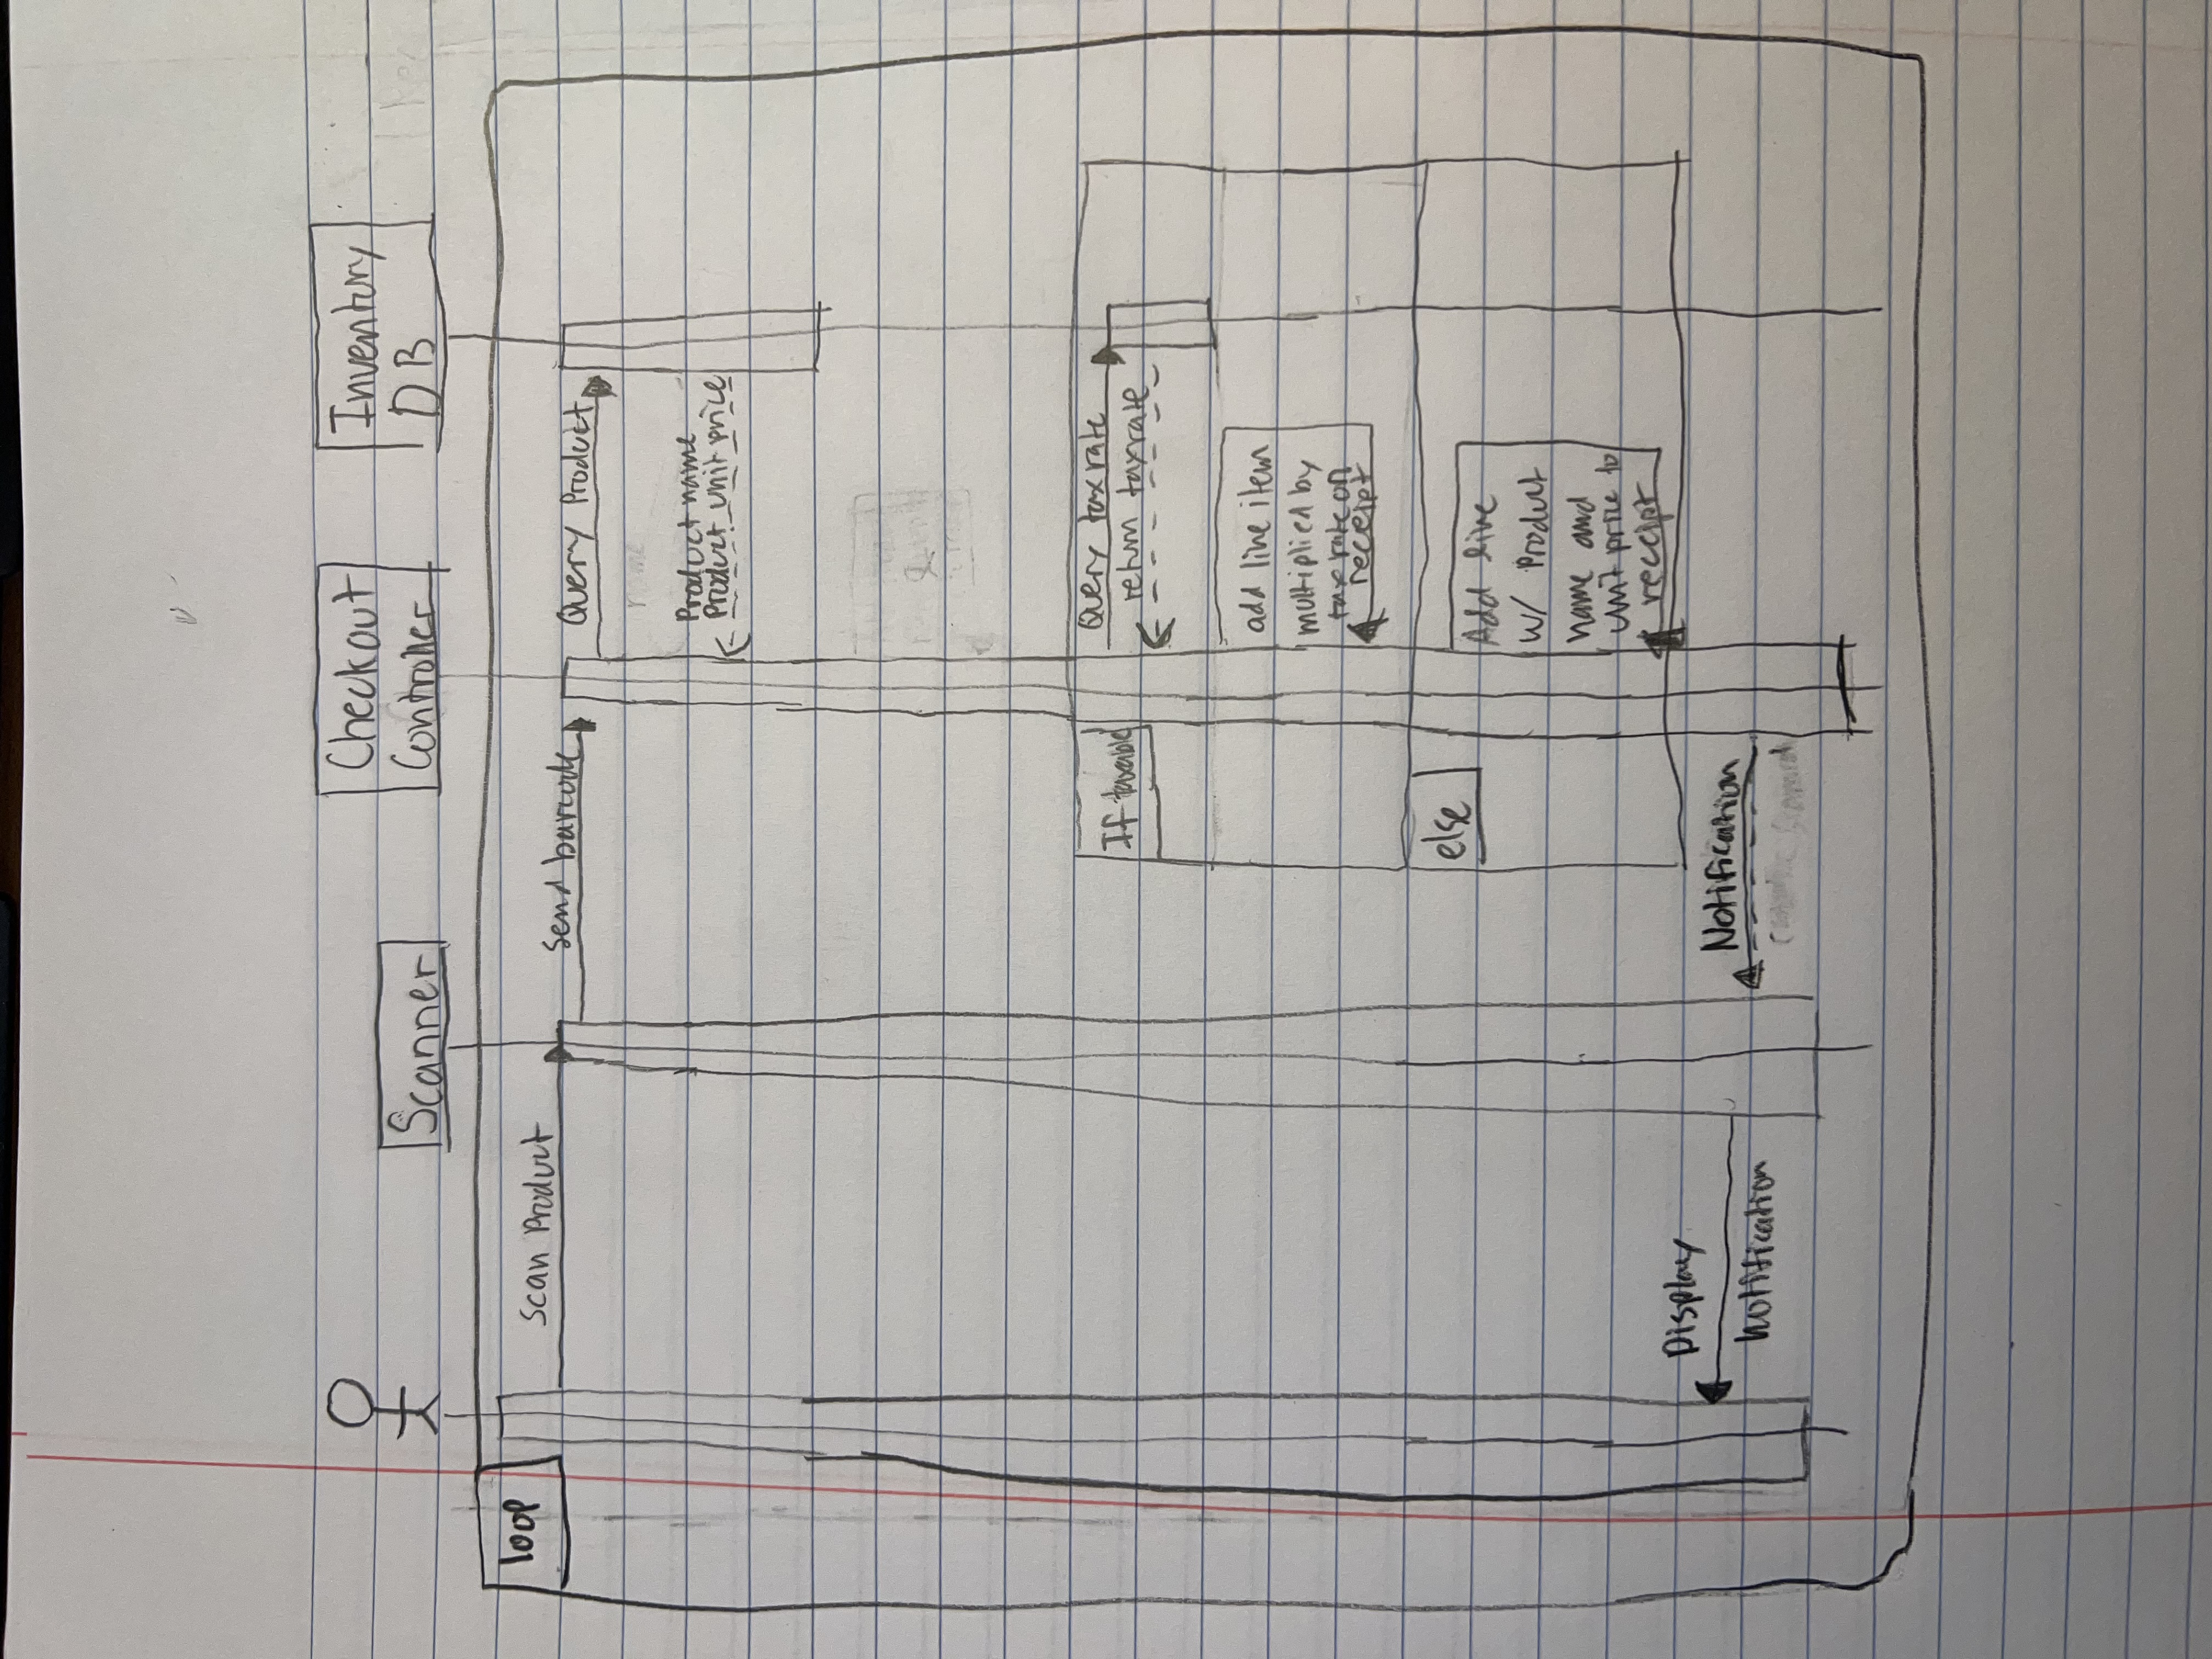 Checkout
Controller
Inventory
DB
Scanner
loop
Scan Product
Send barcode
Query Product
name
Product name
Product unit price
If taxable
Query taxrate
return taxrate
add line item
multiplied by
taxrate on
receipt
else
Add line
w/ Product
name and
unit price to
receipt
Display
Notification
Notification